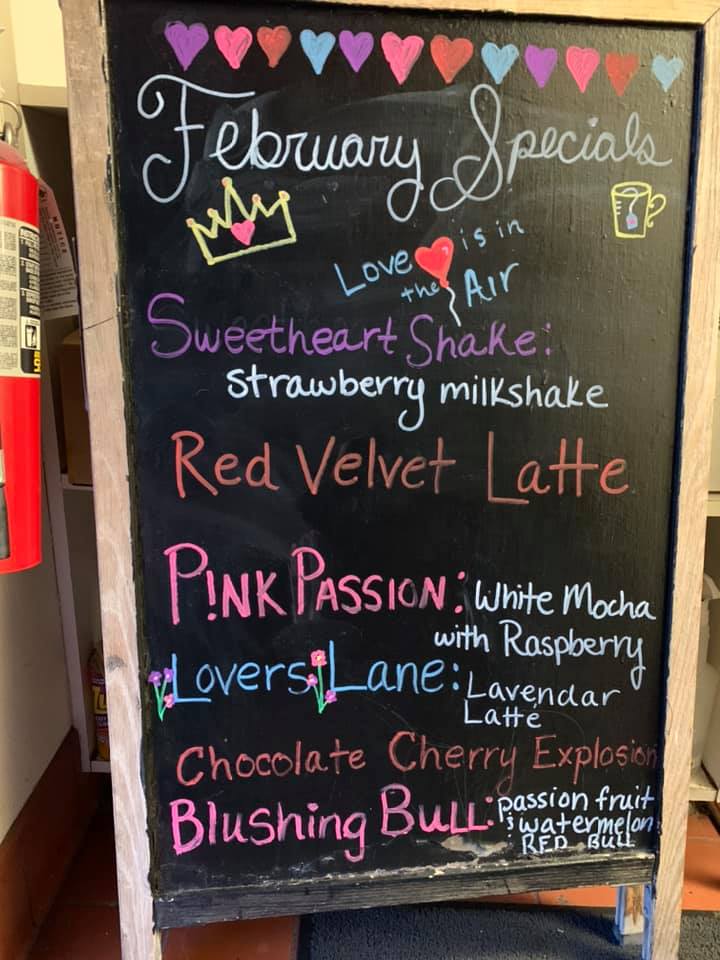 February Specials
Love is in
the Air
Sweetheart Shake:
strawberry milkshake
Red Velvet Latte
P!NK PASSION: White Mocha
with Raspberry
Lovers Lane: Lavendar
Latte
Chocolate Cherry Explosion
Blushing Bull: passion fruit
& watermelon
RED BULL
NOTICE